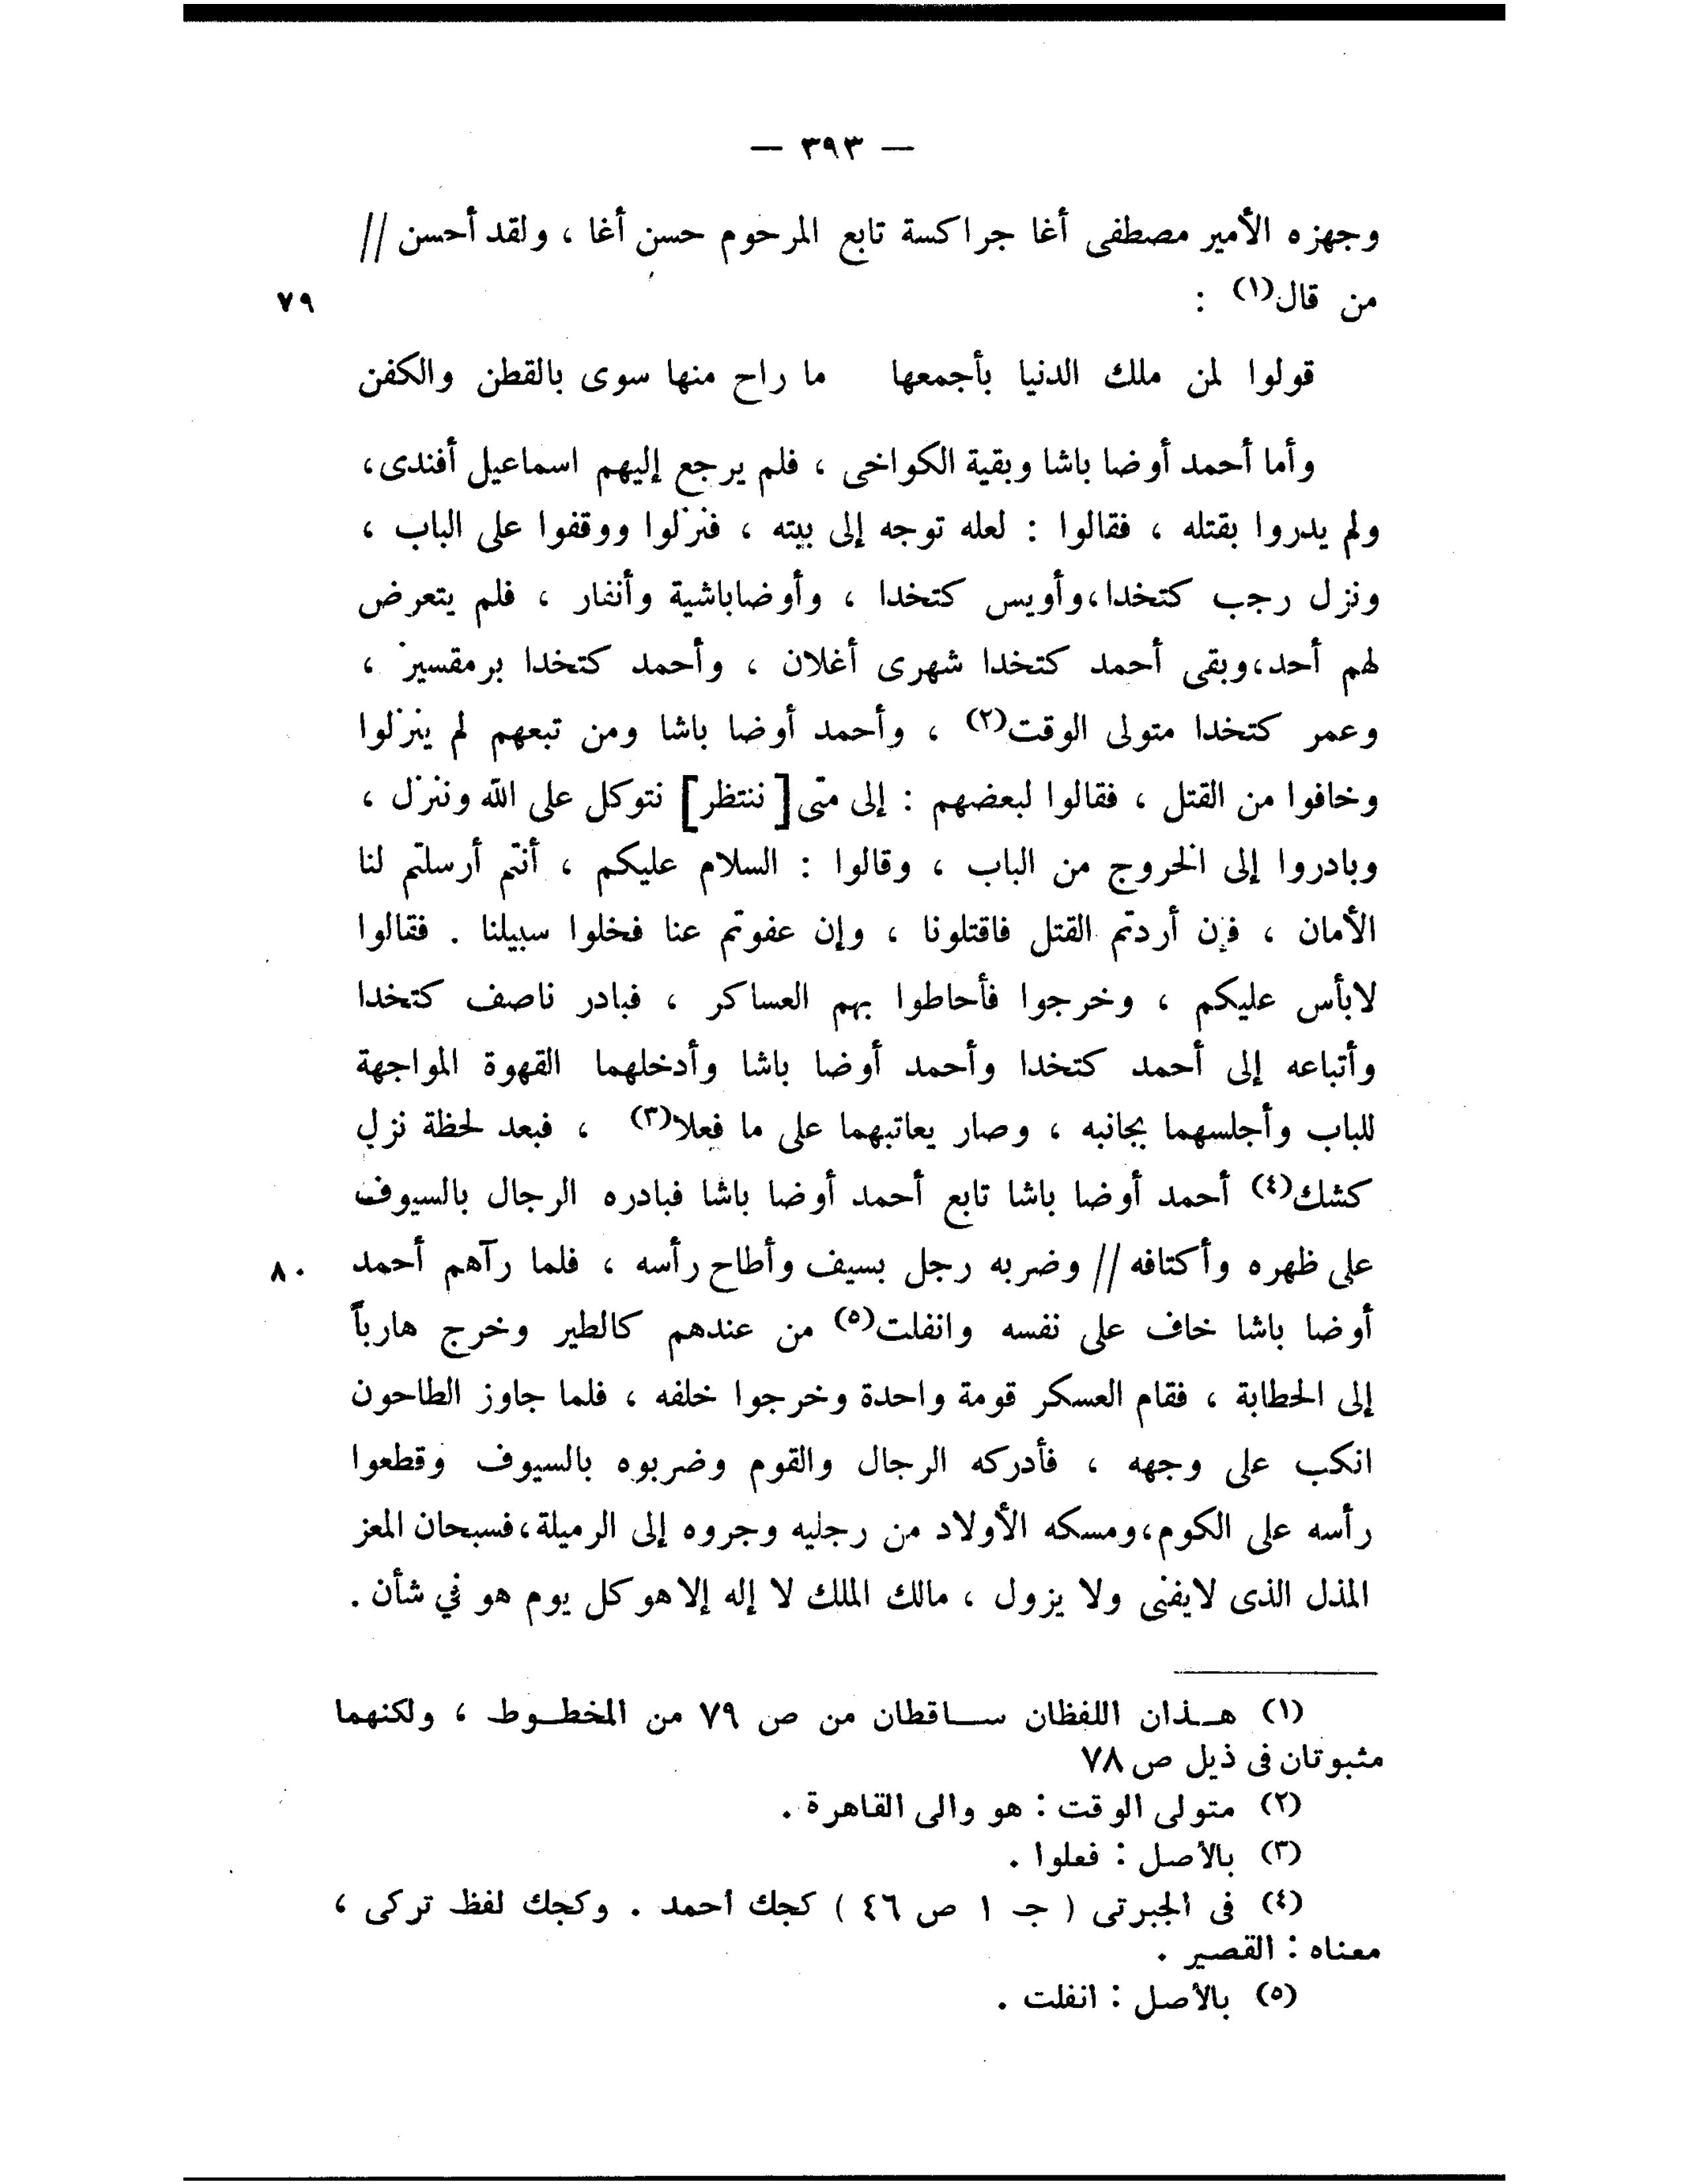 — ٣٩٣ —
وجهزه الأمير مصطفى أغا جراكسة تابع المرحوم حسن أغا ، ولقد أحسن //
من قال(١) : ٧٩
قولوا لمن ملك الدنيا بأجمعها ما راح منها سوى بالقطن والكفن
وأما أحمد أوضا باشا وبقية الكواخى ، فلم يرجع إليهم اسماعيل أفندى،
ولم يدروا بقتله ، فقالوا : لعله توجه إلى بيته ، فنزلوا ووقفوا على الباب ،
ونزل رجب كتخدا،وأويس كتخدا ، وأوضاباشية وأنفار ، فلم يتعرض
لهم أحد،وبقى أحمد كتخدا شهرى أغلان ، وأحمد كتخدا برمقسيز ،
وعمر كتخدا متولى الوقت(٢) ، وأحمد أوضا باشا ومن تبعهم لم ينزلوا
وخافوا من القتل ، فقالوا لبعضهم : إلى متى [ ننتظر ] نتوكل على الله وننزل ،
وبادروا إلى الخروج من الباب ، وقالوا : السلام عليكم ، أنتم أرسلتم لنا
الأمان ، فإن أردتم القتل فاقتلونا ، وإن عفوتم عنا فخلوا سبيلنا . فقالوا
لابأس عليكم ، وخرجوا فأحاطوا بهم العساكر ، فبادر ناصف كتخدا
وأتباعه إلى أحمد كتخدا وأحمد أوضا باشا وأدخلهما القهوة المواجهة
للباب وأجلسهما بجانبه ، وصار يعاتبهما على ما فعلا(٣) ، فبعد لحظة نزل
كشك(٤) أحمد أوضا باشا تابع أحمد أوضا باشا فبادره الرجال بالسيوف
على ظهره وأكتافه // وضربه رجل بسيف وأطاح رأسه ، فلما رآهم أحمد ٨٠
أوضا باشا خاف على نفسه وانفلت(٥) من عندهم كالطير وخرج هارباً
إلى الحطابة ، فقام العسكر قومة واحدة وخرجوا خلفه ، فلما جاوز الطاحون
انكب على وجهه ، فأدركه الرجال والقوم وضربوه بالسيوف وقطعوا
رأسه على الكوم،ومسكه الأولاد من رجليه وجروه إلى الرميلة،فسبحان المعز
المذل الذى لايفنى ولا يزول ، مالك الملك لا إله إلا هو كل يوم هو في شأن .
(١) هــذان اللفظان ســاقطان من ص ٧٩ من المخطــوط ، ولكنهما
مثبوتان فى ذيل ص ٧٨
(٢) متولى الوقت : هو والى القاهرة .
(٣) بالأصل : فعلوا .
(٤) فى الجبرتى ( جـ ١ ص ٤٦ ) كجك أحمد . وكجك لفظ تركى ،
معناه : القصير .
(٥) بالأصل : انفلت .